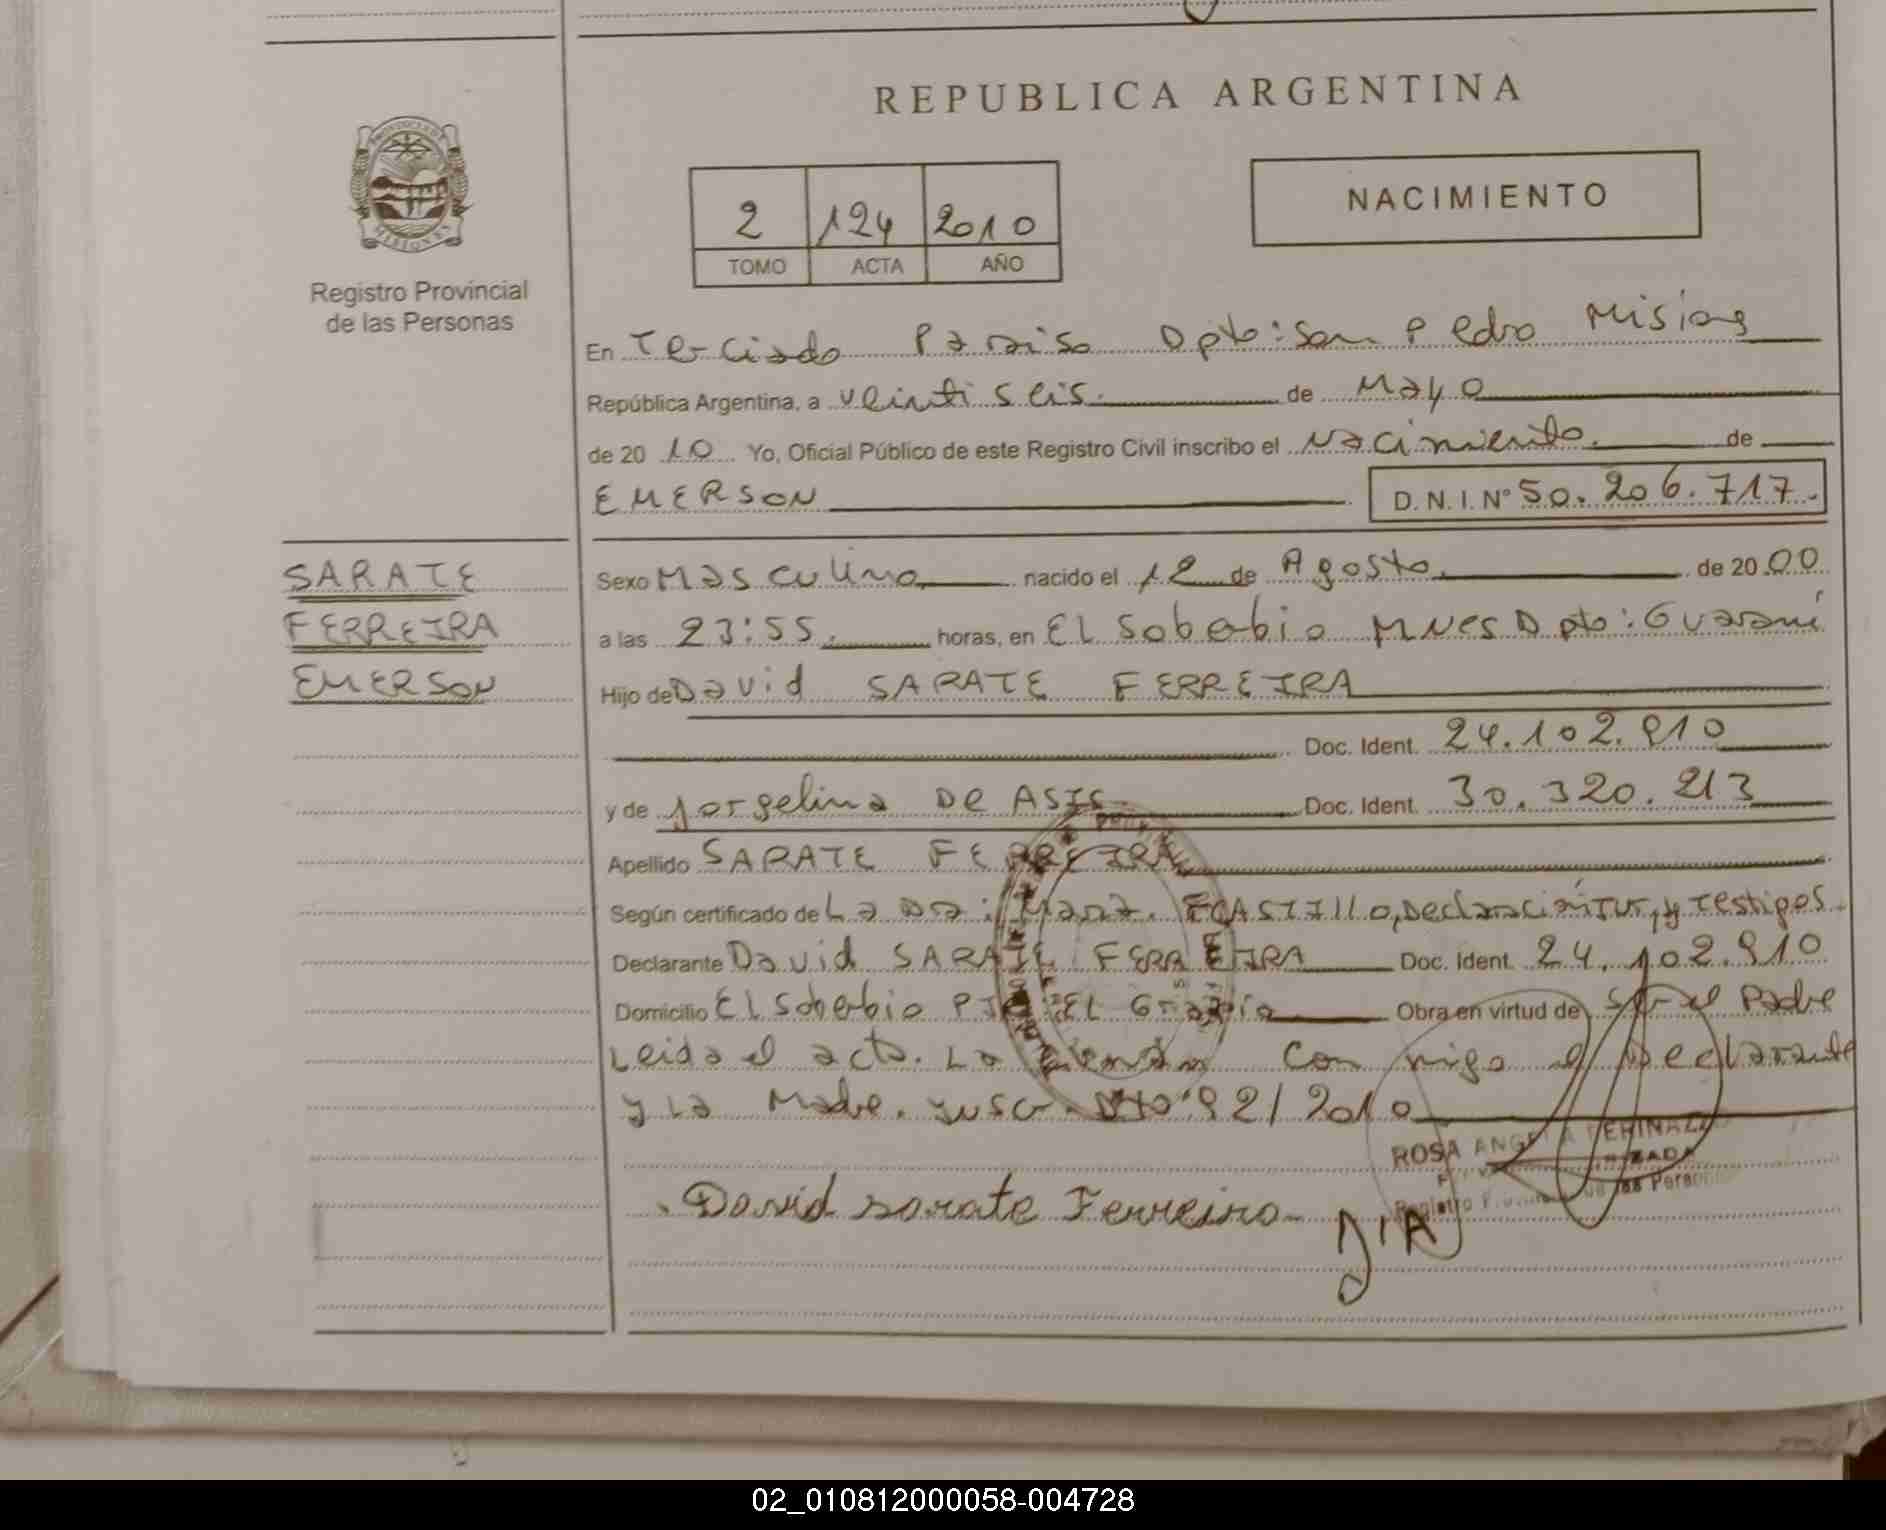 REPUBLICA ARGENTINA
PROVINCIA DE
MISIONES
Registro Provincial
de las Personas
2 124 2010
TOMO ACTA AÑO
NACIMIENTO
En Terciado Paraiso Dpto: San Pedro Misiones
República Argentina, a veintiseis. de Mayo
de 20 10 Yo, Oficial Público de este Registro Civil inscribo el Nacimiento. de
EMERSON D.N.I. N° 50.206.717.
SARATE
FERREIRA
EMERSON
Sexo Masculino nacido el 12 de Agosto. de 20 00
a las 23:55. horas, en EL Soberbio MNES Dpto: Guaraní
Hijo de David SARATE FERREIRA
Doc. Ident. 24.102.910
y de Jorgelina De ASIS Doc. Ident. 30.320.213
Apellido SARATE FERREIRA
Según certificado de La Dra: Declaración Jur, y Testigos.
Declarante David SARATE FERREIRA Doc. Ident. 24.102.910
Domicilio EL Soberbio EL Obra en virtud de Ser el Padre
Leida el acta. La firman Con migo el Declarante
y La Madre. 92/2010
ROSA ANGELA
Registro de las Personas
David sarate Ferreira
J'A
02_010812000058-004728